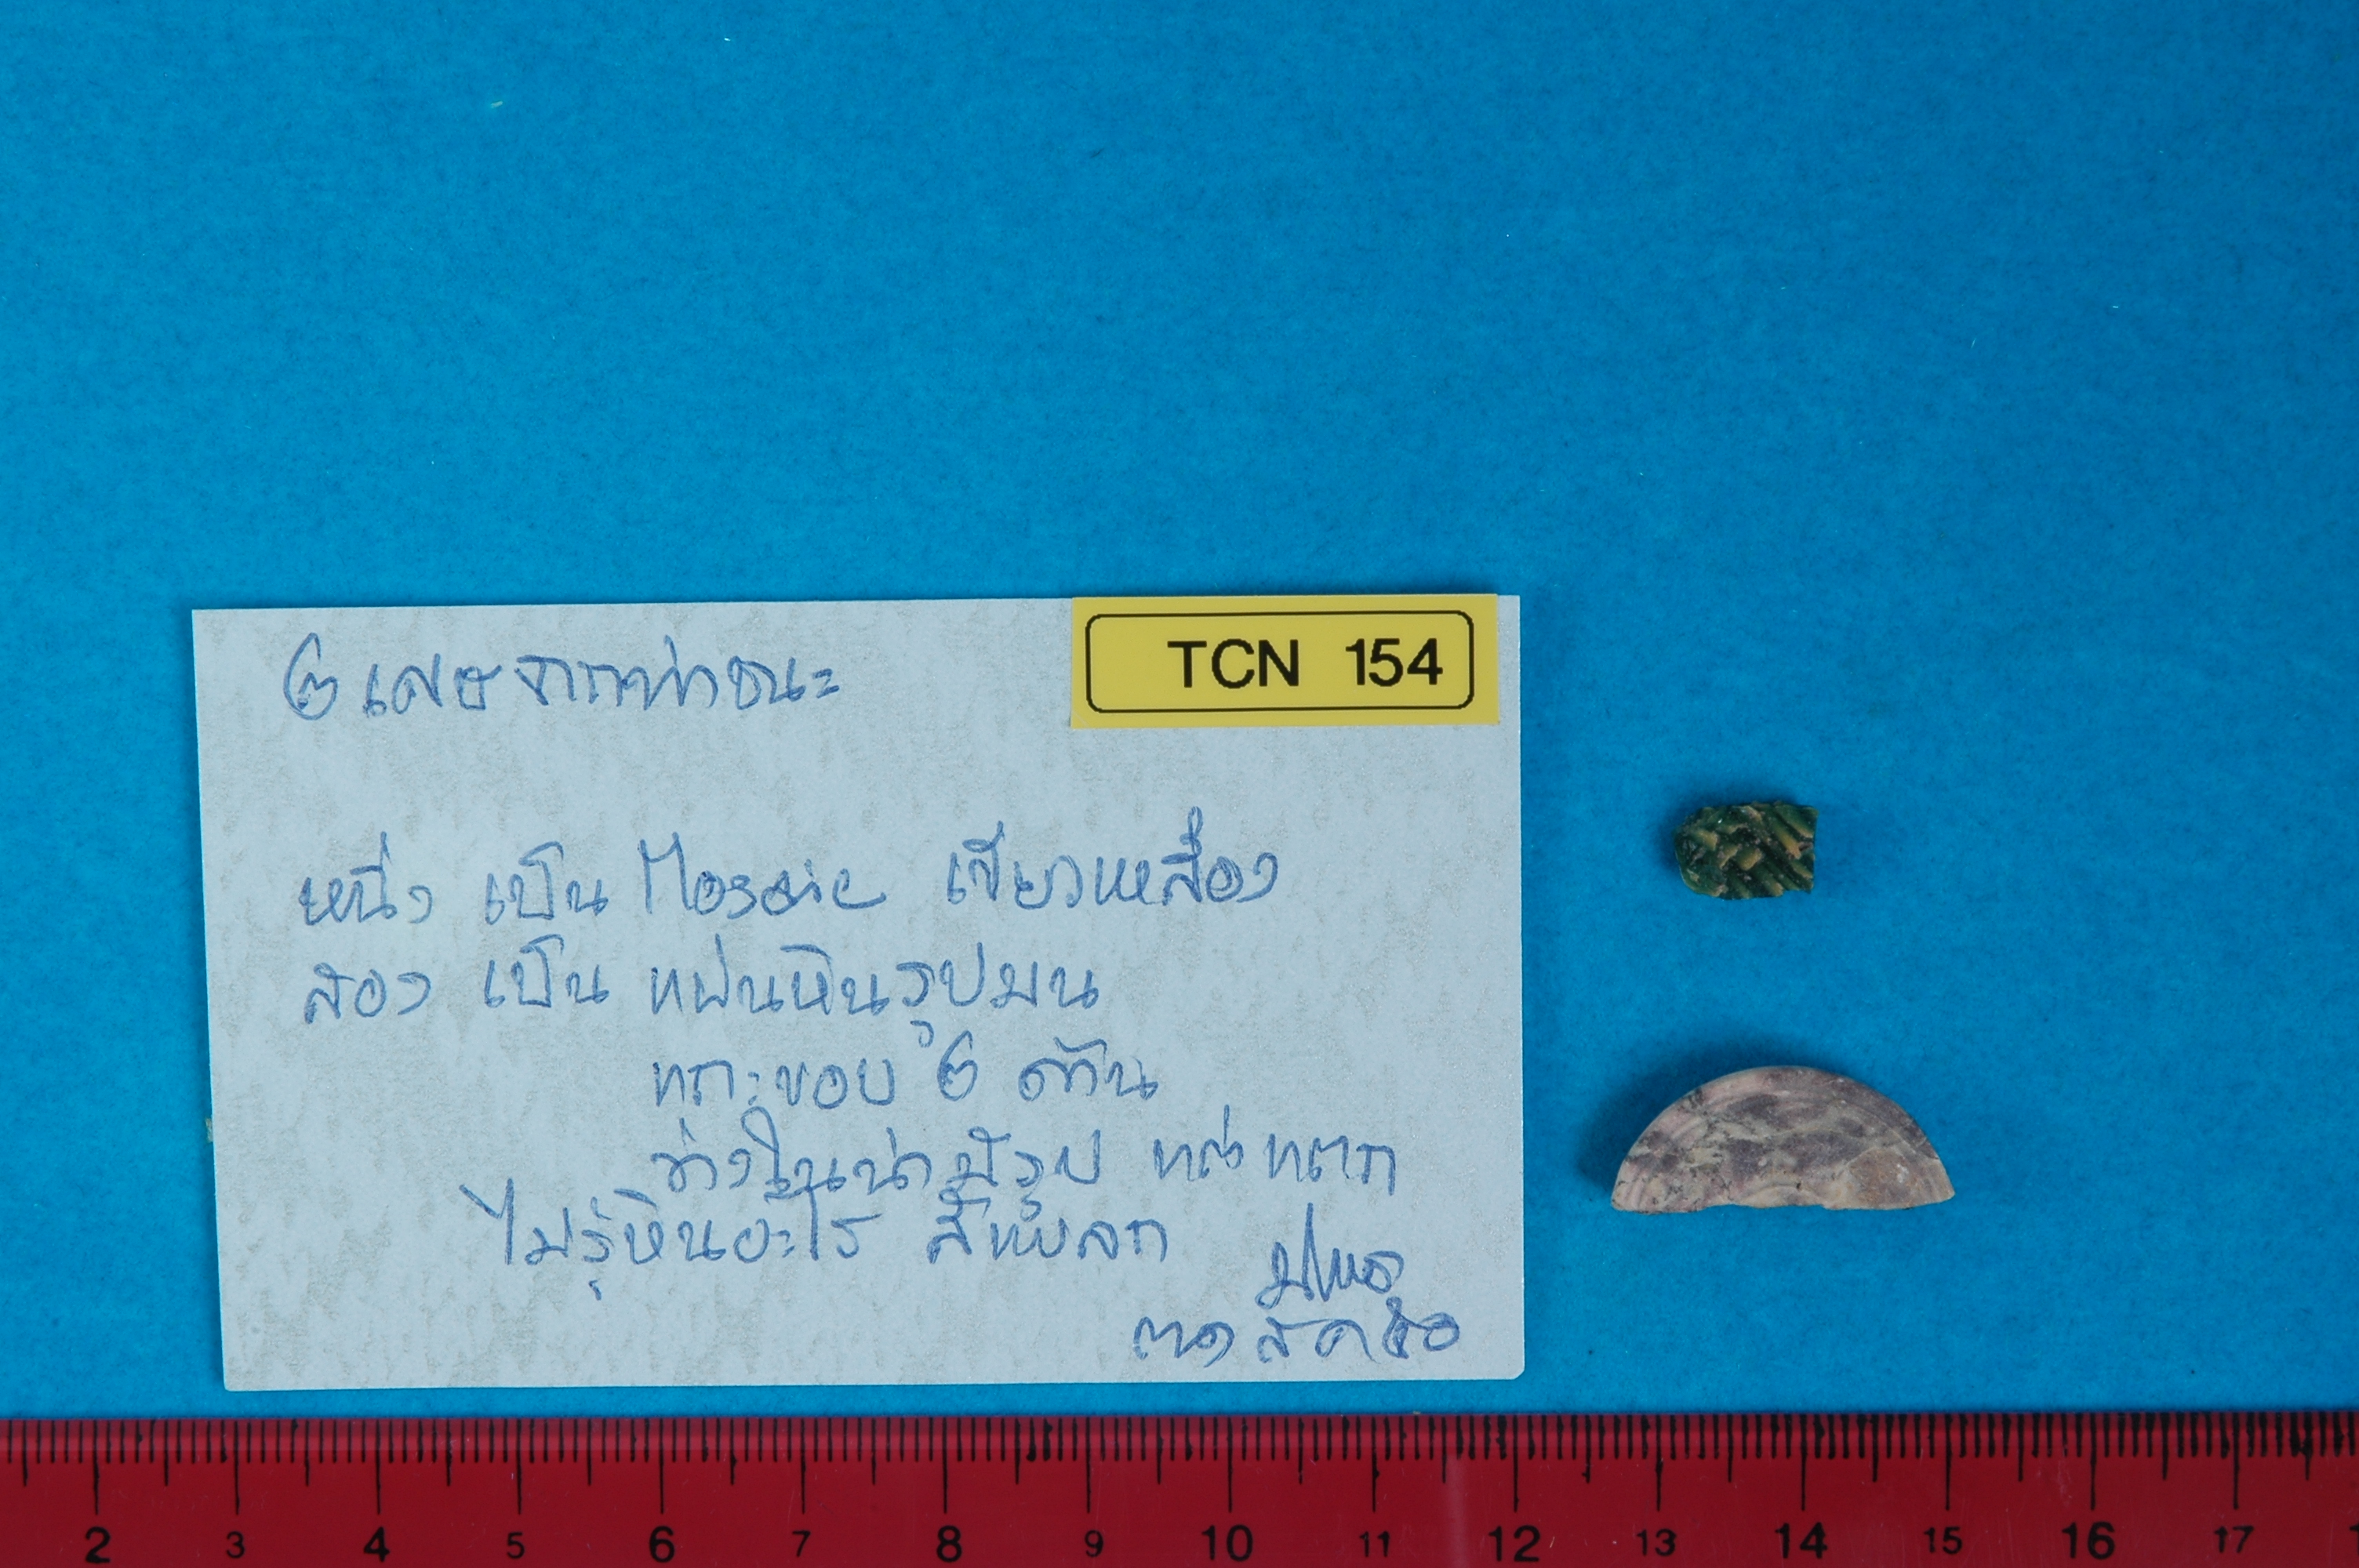 ๒ เศษจากท่าชนะ
TCN 154
หนึ่ง เป็น Mosaic เขียวเหลือง
สอง เป็น แผ่นหินรูปมน
แกะขอบ ๒ ด้าน
ข้างในน่ามีรูป แต่แตก
ไม่รู้หินอะไร สีแปลก
2 3 4 5 6 7 8 9 10 11 12 13 14 15 16 17